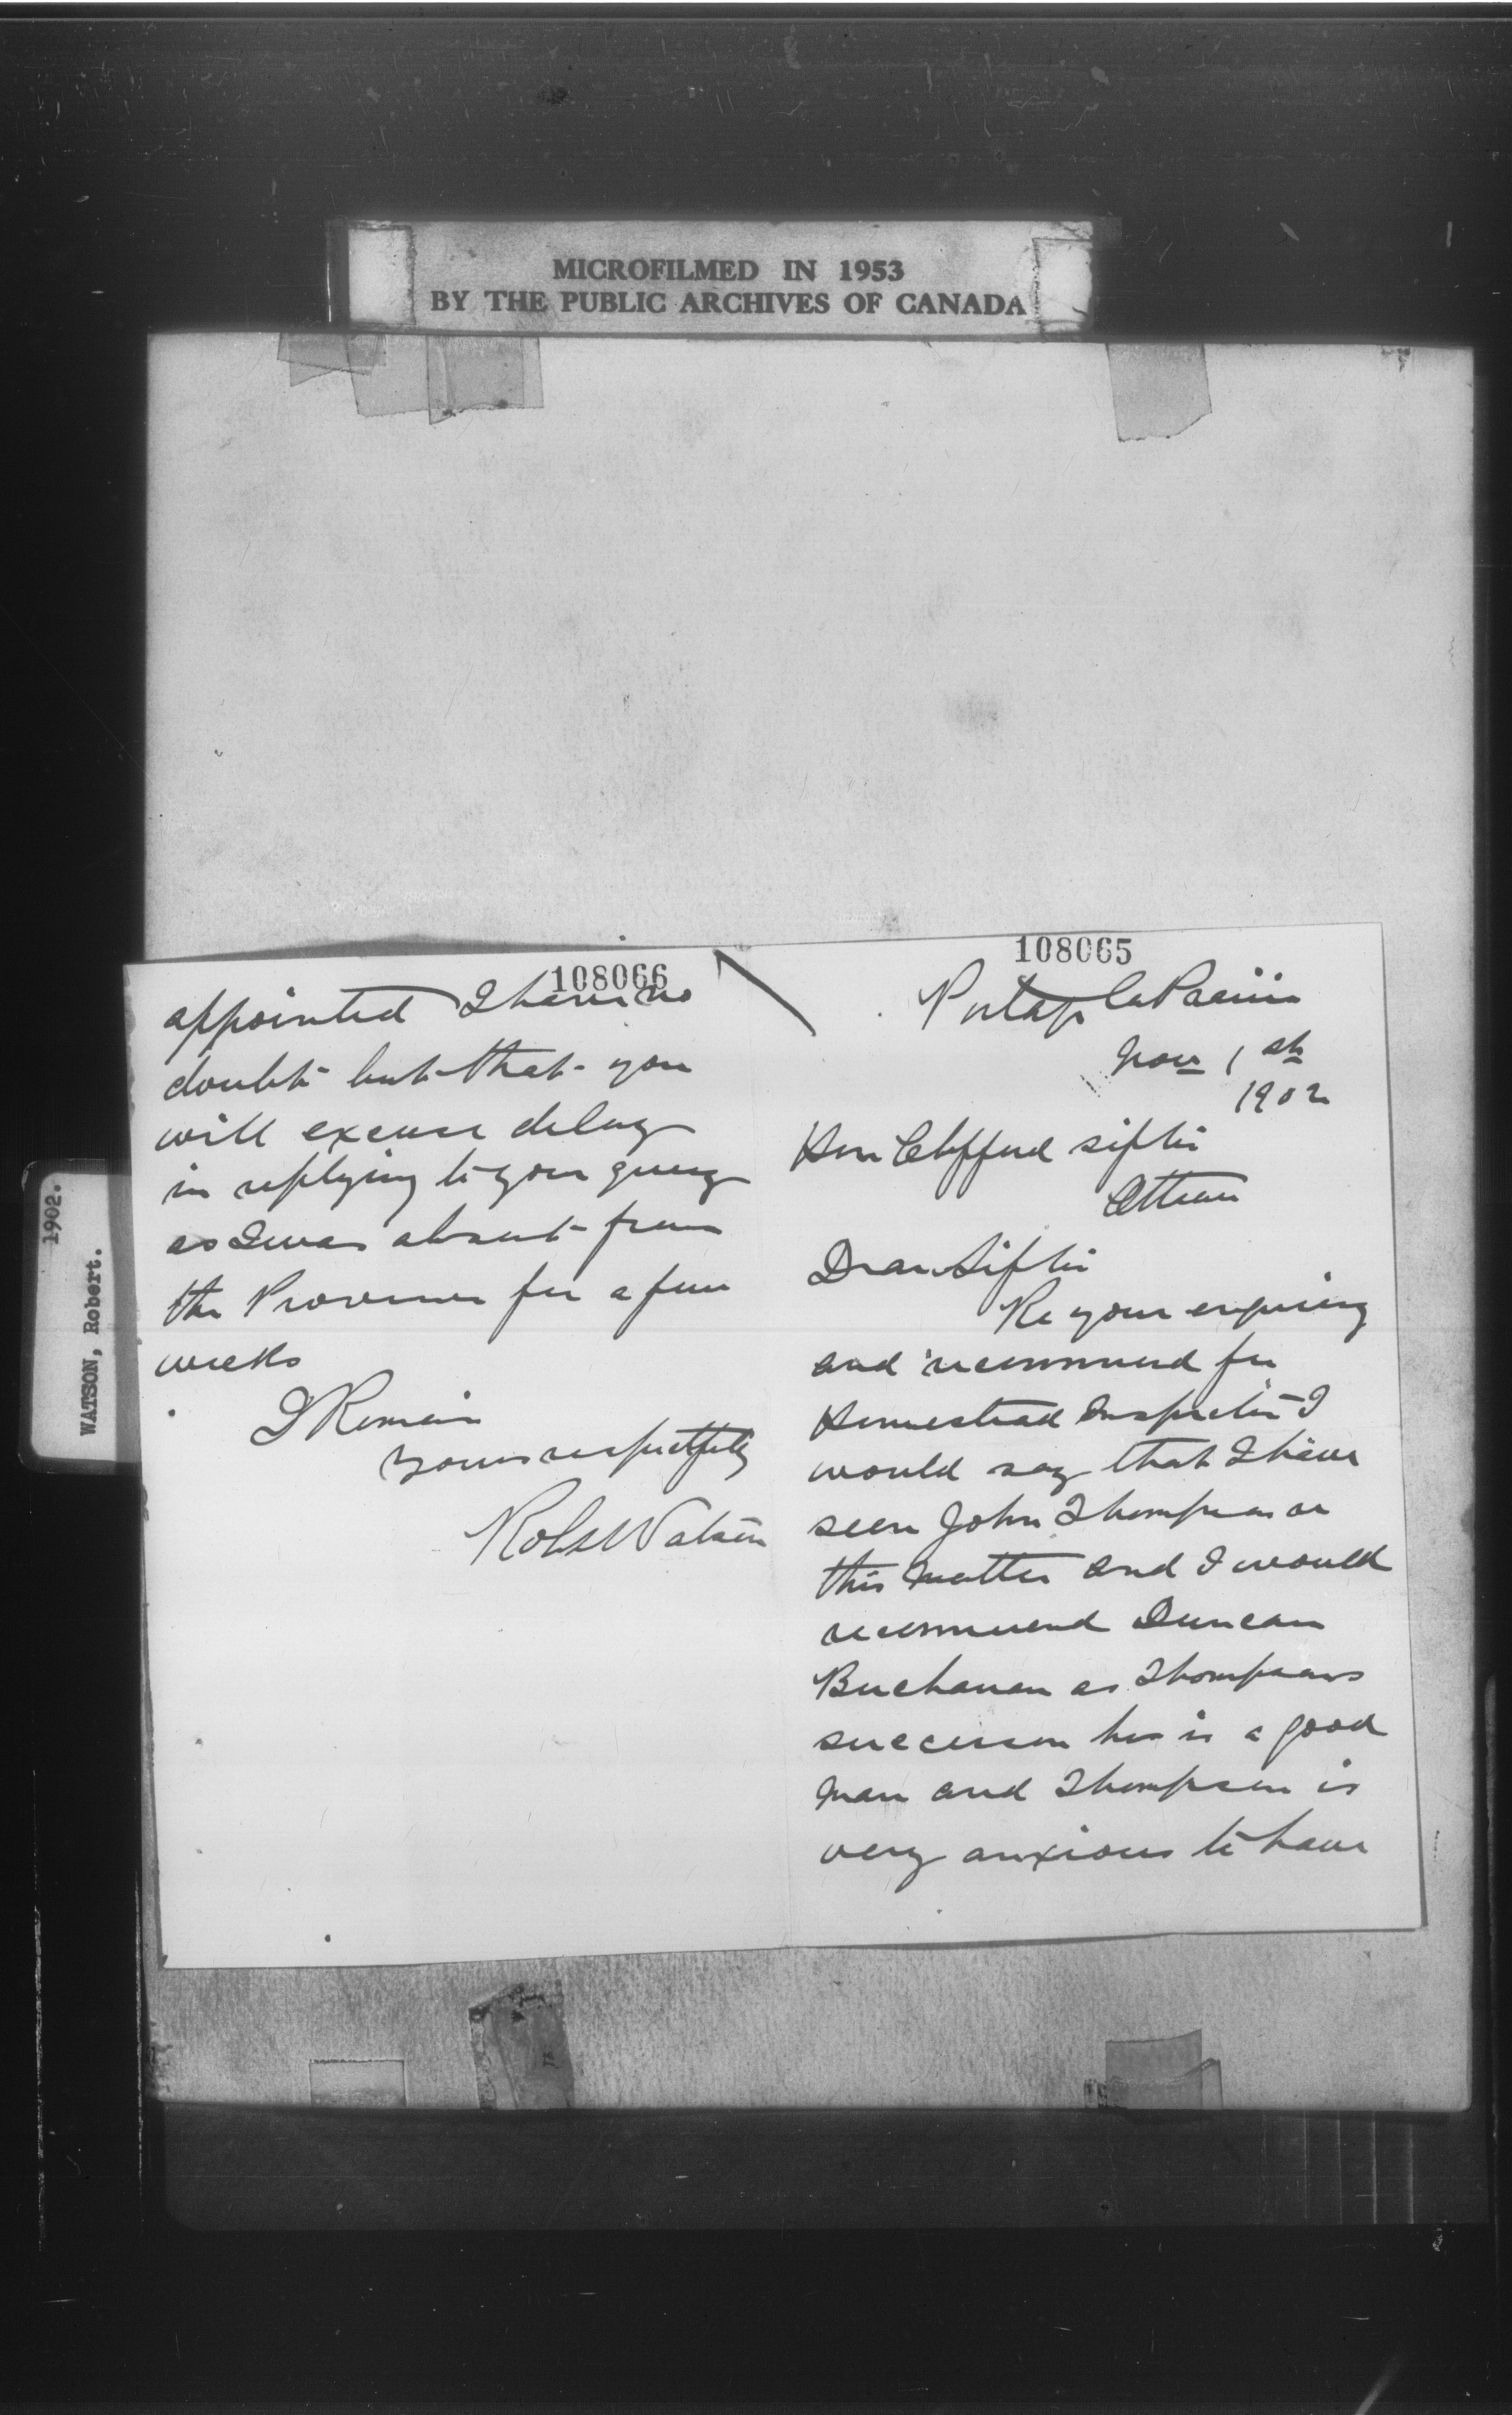 MICROFILMED IN 1953
BY THE PUBLIC ARCHIVES OF CANADA
1902.
WATSON, Robert.
108065
Portage la Prairie
Nov 1st
1902
Hon Clifford Sifton
Ottawa
Dear Sifton
Re your enquiry
and recommend for
Homestead Inspector I
would say that I have
seen John Thompson on
this matter and I would
recommend Duncan
Buchanan as Thompsons
successor he is a good
man and Thompson is
very anxious to have
108066
appointed I have no
doubt but that you
will excuse delay
in replying to your query
as I was absent from
the Province for a few
weeks
I Remain
yours respectfully
Robt Watson